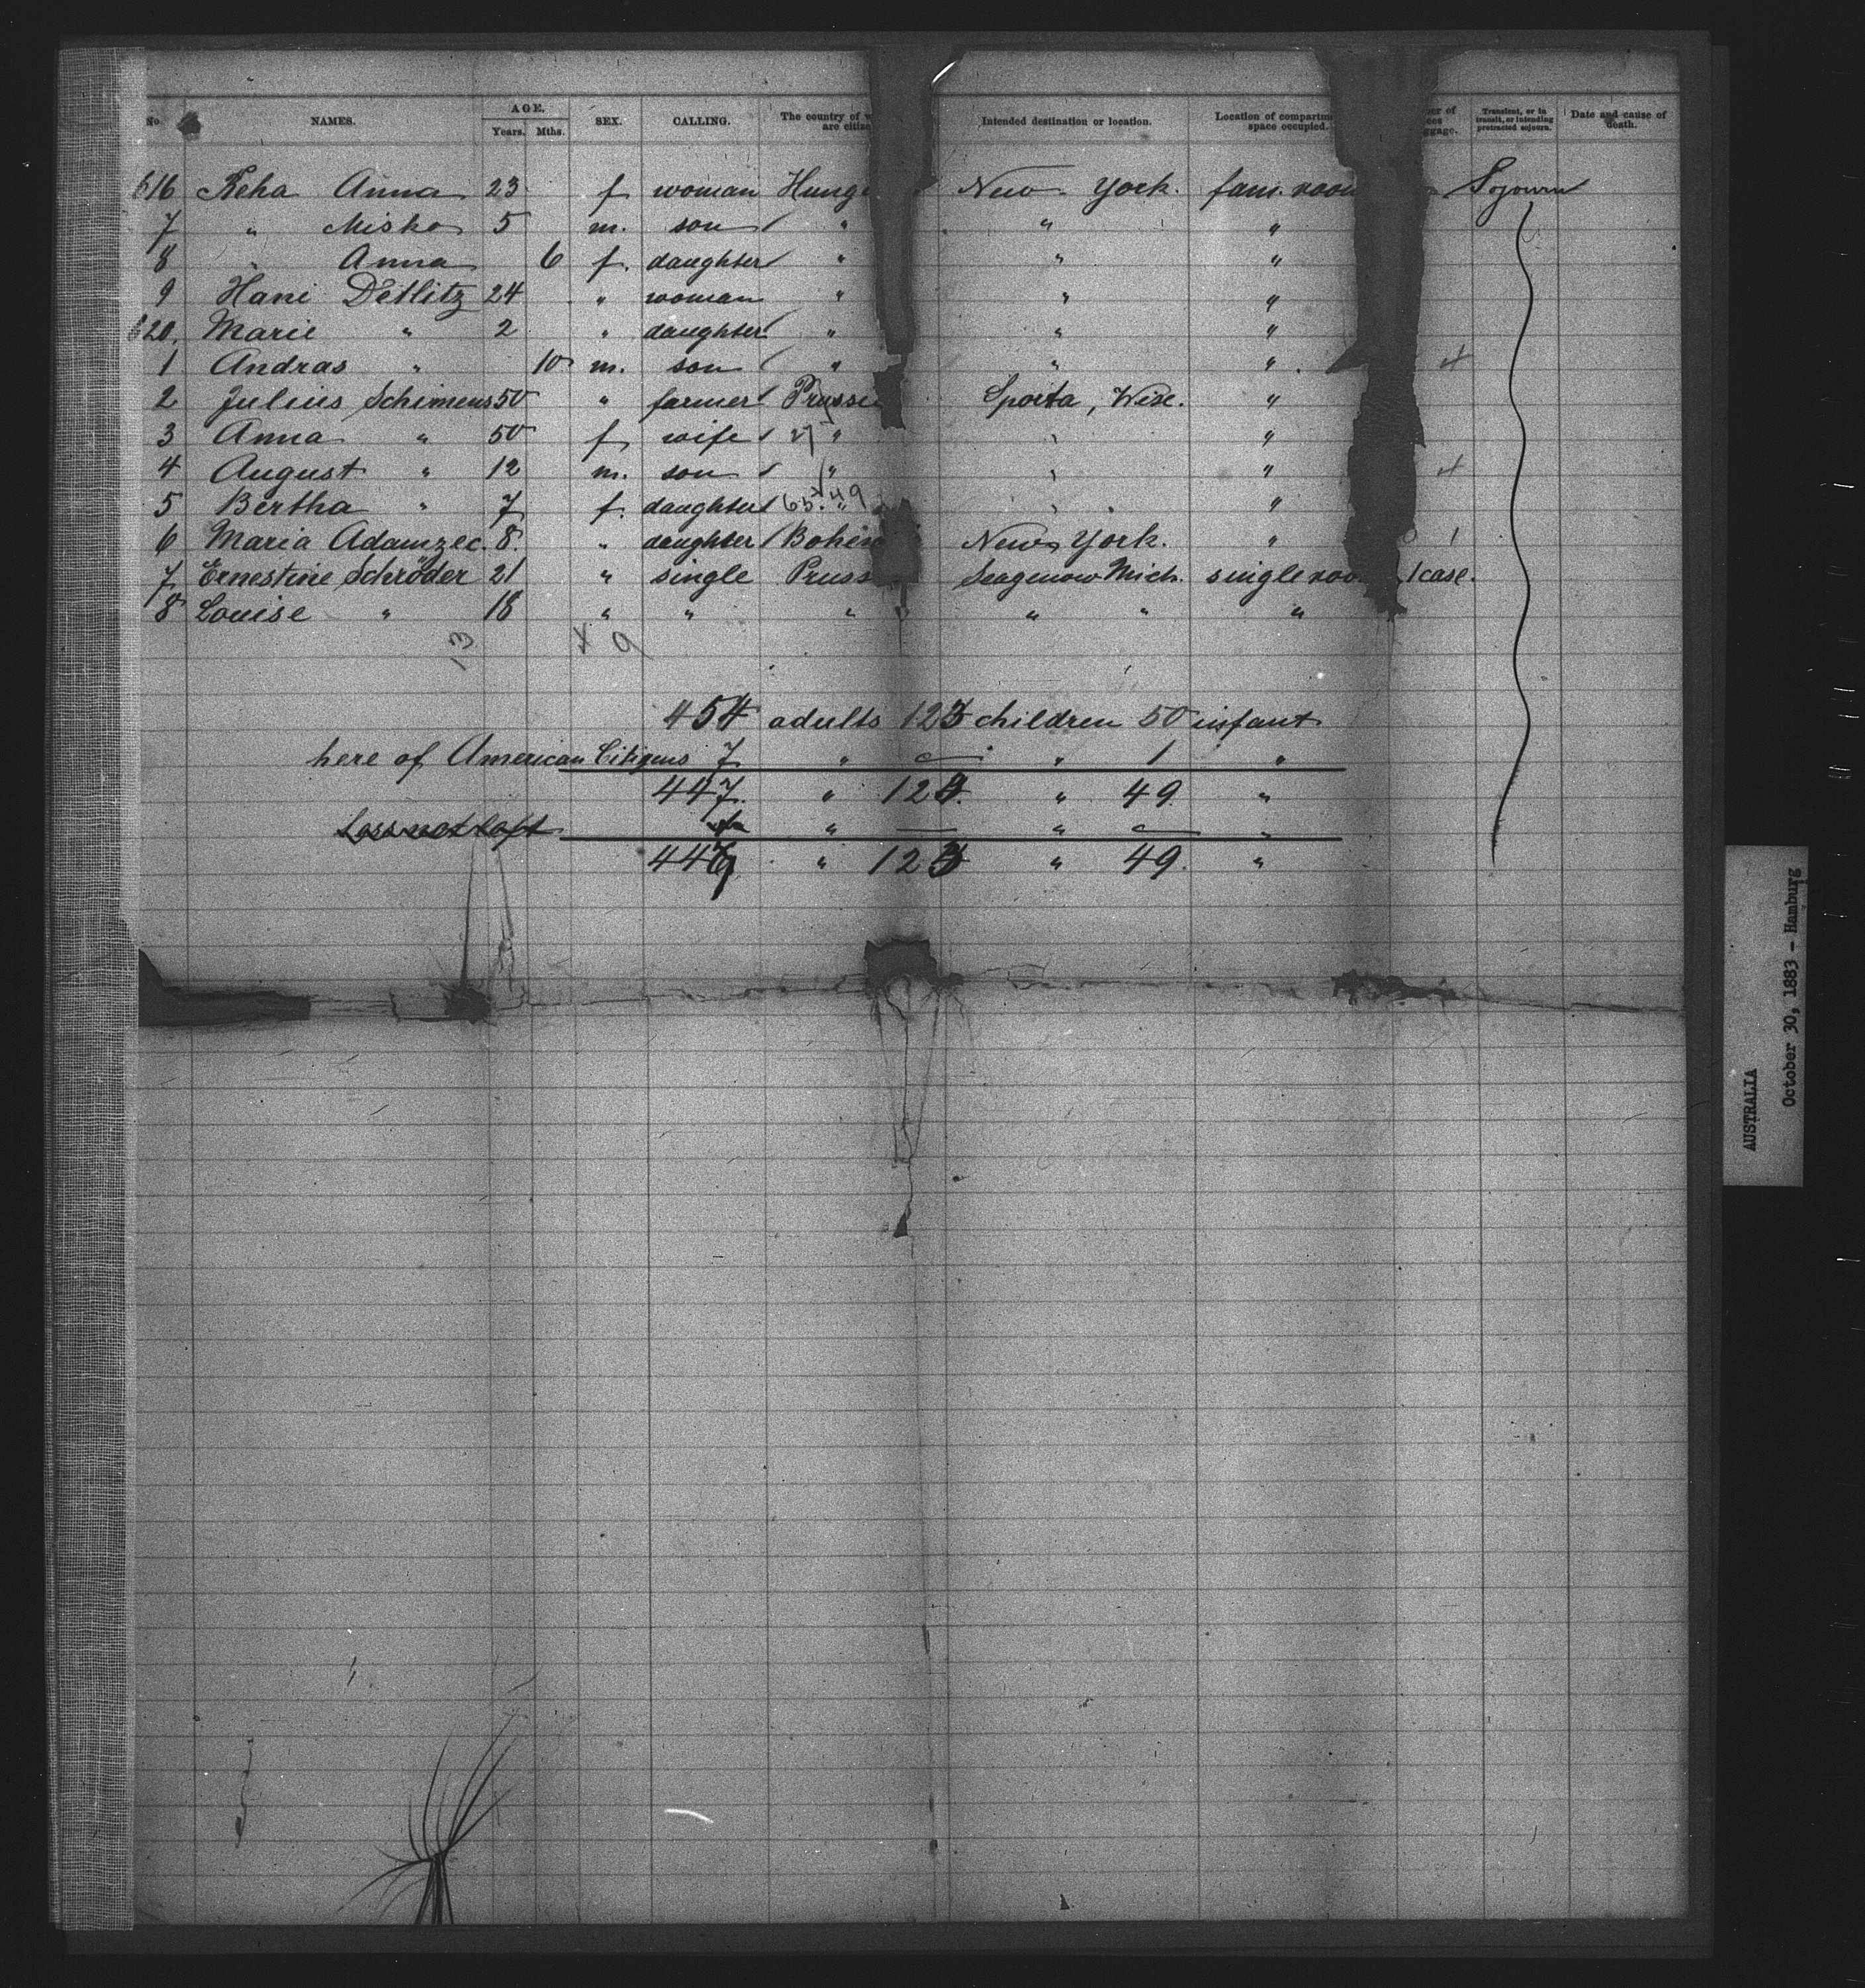 No. NAMES. AGE. Years. Mths. SEX. CALLING. The country of are citize Intended destination or location. Location of compartm space occupied. ggage. Transient, or in transit, or intending protracted sojourn. Date and cause of death.
616 Reha Anna 23 f woman Hung New York. fam. room Sojourn
7 " Misko 5 m. son " " "
8 " Anna 6 f. daughter " " "
9 Hani Detlitz 24 " woman " " "
620. Marie " 2 " daughter " " "
1 Andras " 10 m. son " " " 4
2 Julius Schimens 50 " farmer Prussi Sporta, Wisc. "
3 Anna " 50 f wife 27 " "
4 August " 12 m. son " " 4
5 Bertha " 7 f. daughter 65. " 49 "
6 Maria Adamzec. 8. " daughter Bohem New York. " 1
7 Ernestine Schröder 21 " single Pruss Seagenow Mich. single roo 1 case.
8 Louise " 18 " " " " " "
13 x 9
454 adults 123 children 50 infant
here of American Citizens 7 " " 1 "
447. " 123. " 49 "
" — " — "
447 " 123 " 49. "
AUSTRALIA
October 30, 1883 - Hamburg